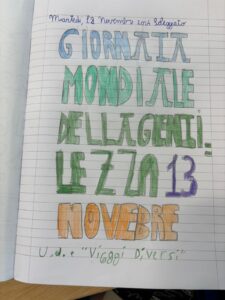 Martedì, 12 Novembre 2024 Soleggiato
GIORNATA
MONDIALE
DELLAGENTI_
LEZZA 13
NOVEBRE
U.d.e "Viaggi Diversi"